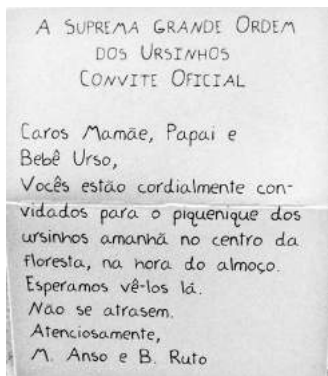 A SUPREMA GRANDE ORDEM
DOS URSINHOS
CONVITE OFICIAL
Caros Mamãe, Papai e
Bebê Urso,
Vocês estão cordialmente con-
vidados para o piquenique dos
ursinhos amanhã no centro da
floresta, na hora do almoço.
Esperamos vê-los lá.
Não se atrasem.
Atenciosamente,
M. Anso e B. Ruto